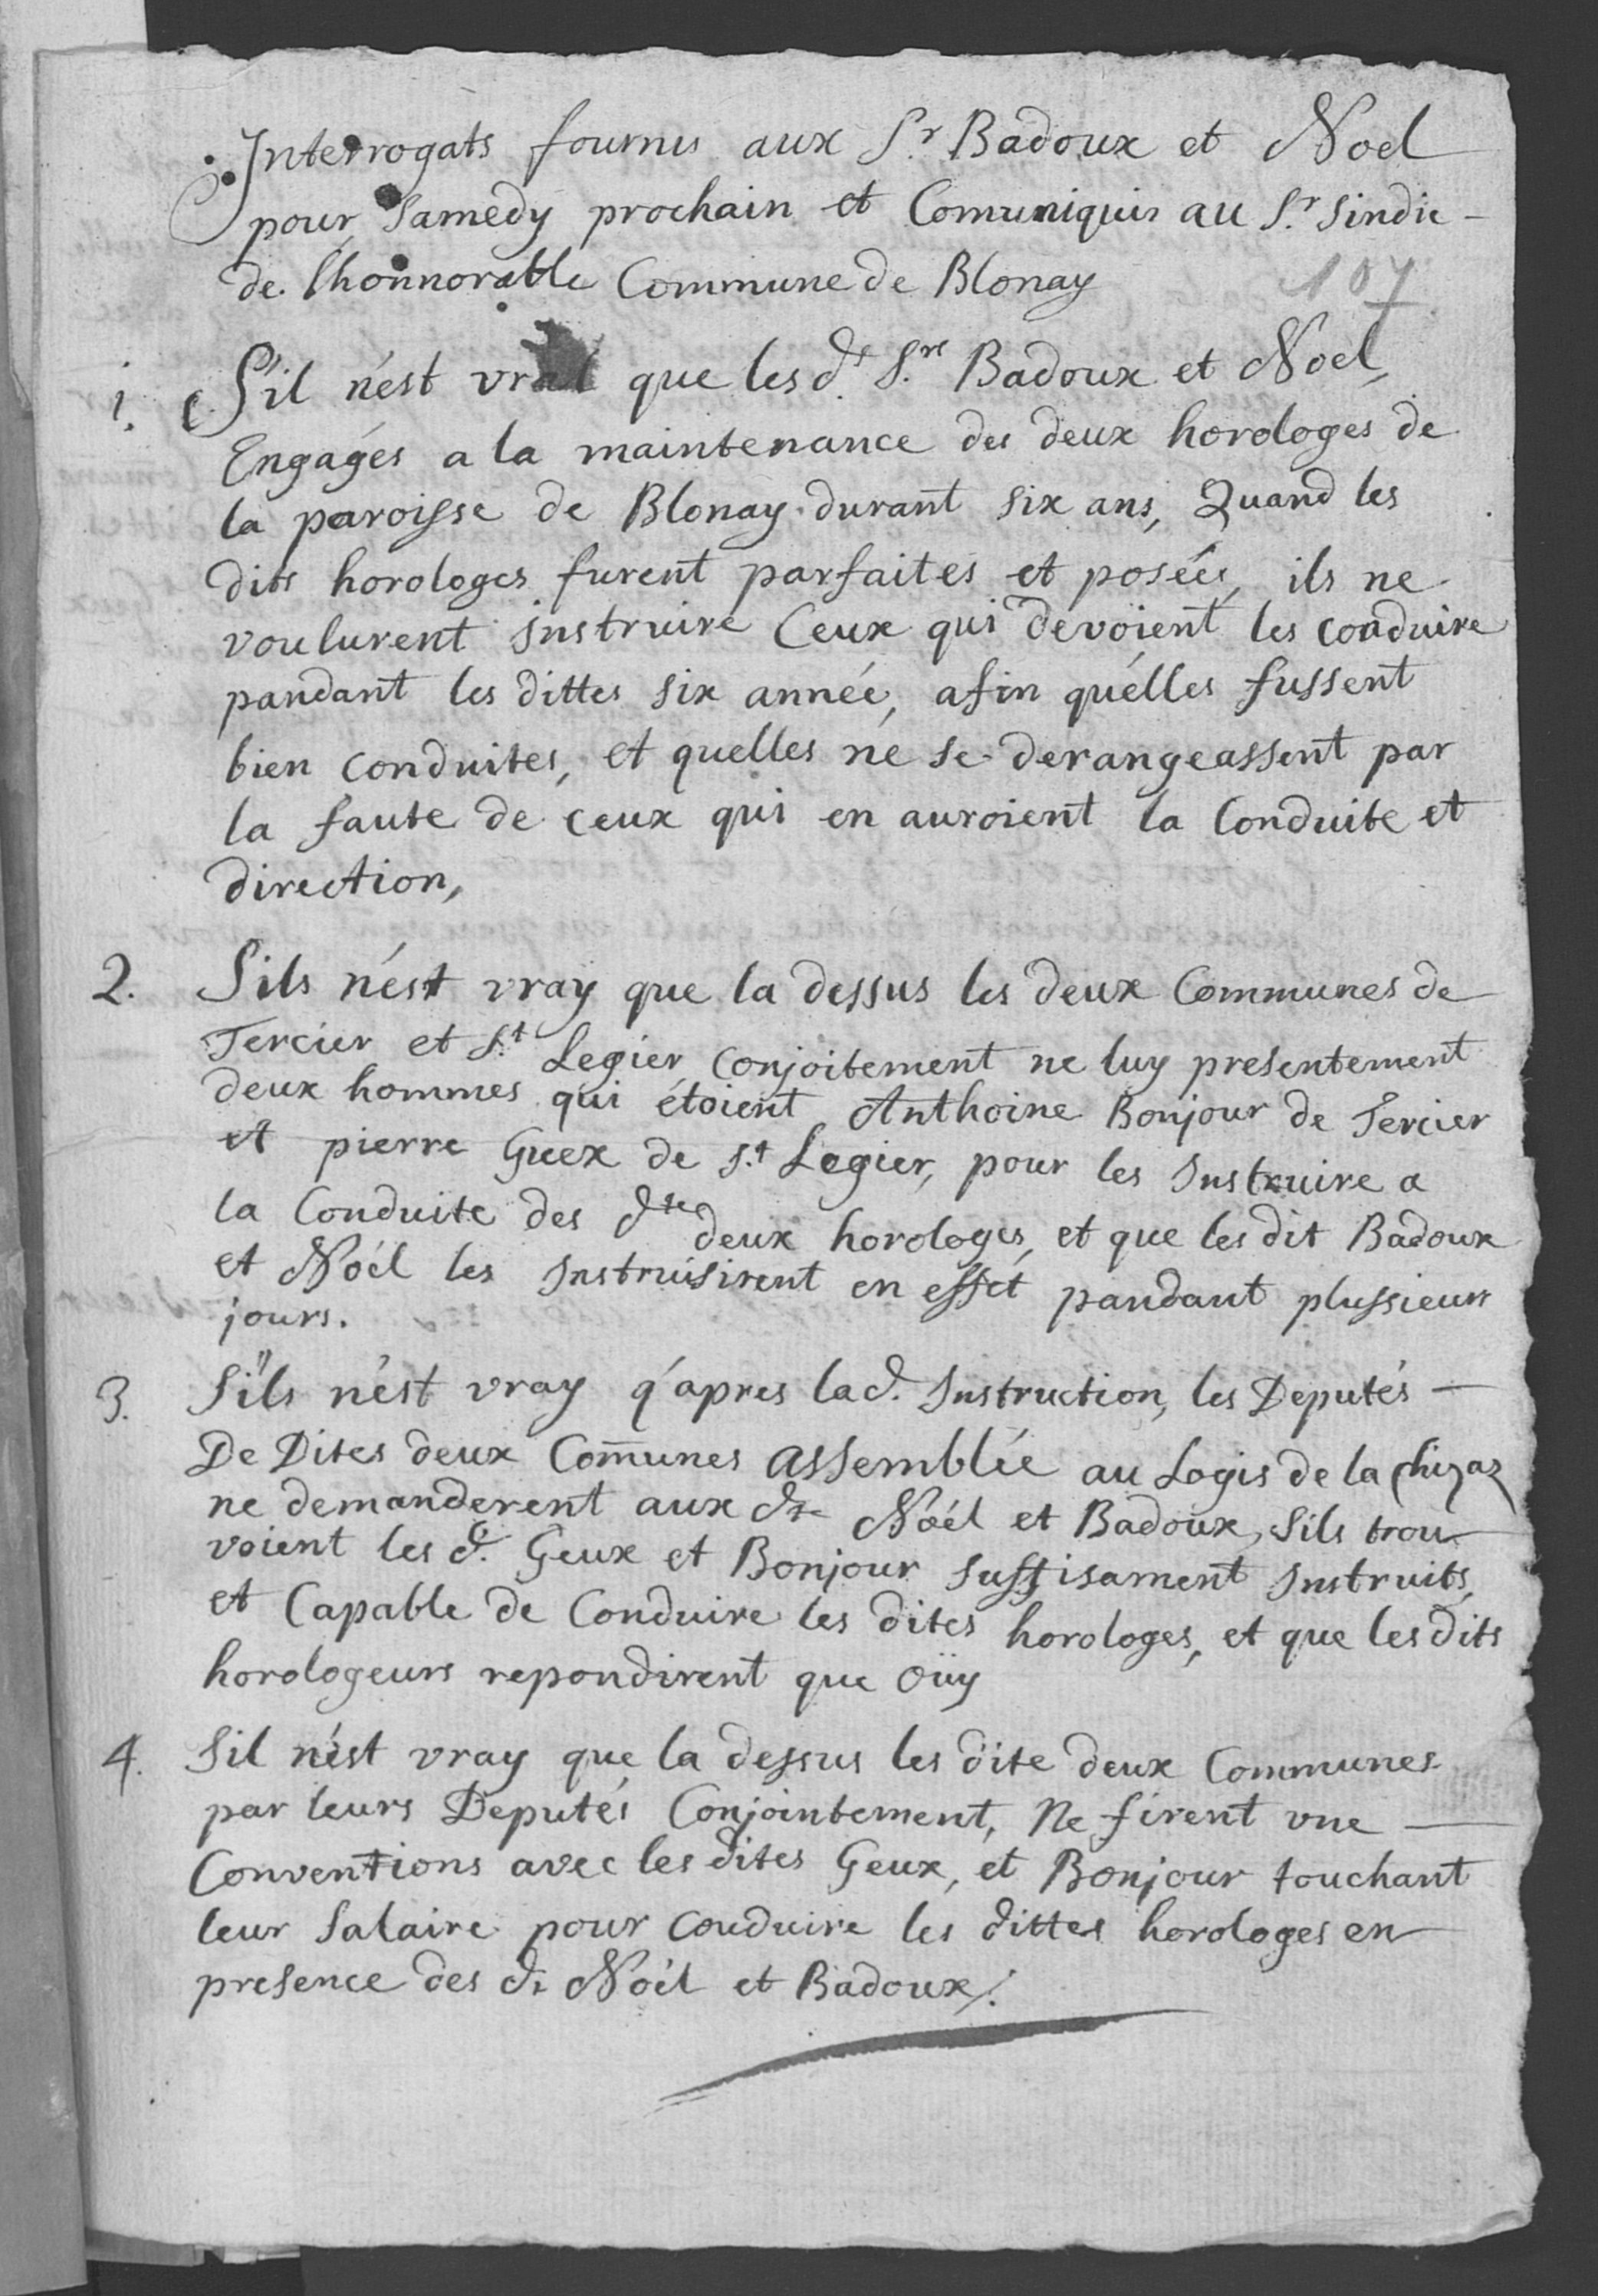 Interrogats fournis aux S.r Badoux et Noel
pour Samedy prochain et Comuniquis au S.r Sindic -
de l'honnorable Commune de Blonay
107
1. S'il n'est vrai que les d.s S.rs Badoux et Noel,
Engagés a la maintenance des deux horologes de
la paroisse de Blonay durant six ans, Quand les
dits horologes furent parfaites et posées, ils ne
voulurent instruire Ceux qui devoient les conduire
pandant les dittes six année, afin qu'elles fussent
bien conduites, et quelles ne se derangeassent par
la faute de ceux qui en auroient la Conduite et
direction,
2. S'ils n'est vray que la dessus les deux Communes de
Tercier et S.t Legier conjoitement ne luy presentement
deux hommes qui étoient Anthoine Bonjour de Tercier
et pierre Guex de S.t Legier, pour les Instruire a
la Conduite des d.tes deux horologes, et que les dit Badoux
et Noél les Instruisirent en effet pandant plussieurs
jours.
3. S'ils n'est vray q'apres lad. Instruction, les Deputés -
De Dites deux Com̄unes assemblée au Logis de la Chiésaz
ne demanderent aux d.ts Noél et Badoux, s'ils trou
voient les d. Geux et Bonjour suffisament Instruits,
et Capable de Conduire les dites horologes, et que les dits
horologeurs repondirent que oüy
4. Sil n'est vray que la dessus les dite deux Communes
par leurs Deputés Conjointement, Ne firent vne -
Conventions avec les dites Geux, et Bonjour touchant
leur Salaire pour conduire les dittes horologes en
presence des d.s Noél et Badoux /.